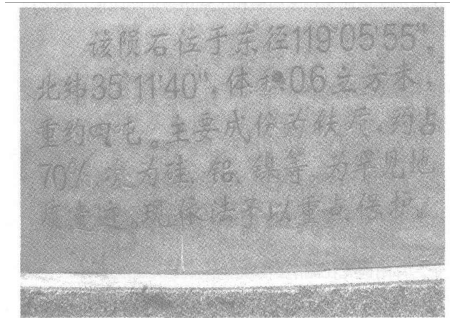 该陨石位于东径119°05'55"，
北纬35°11'40"，体积0.6立方米，
重约四吨。主要成份为铁质，约占
70%，次为硅、铝、镁等，为罕见地
质奇迹。现依法予以重点保护。